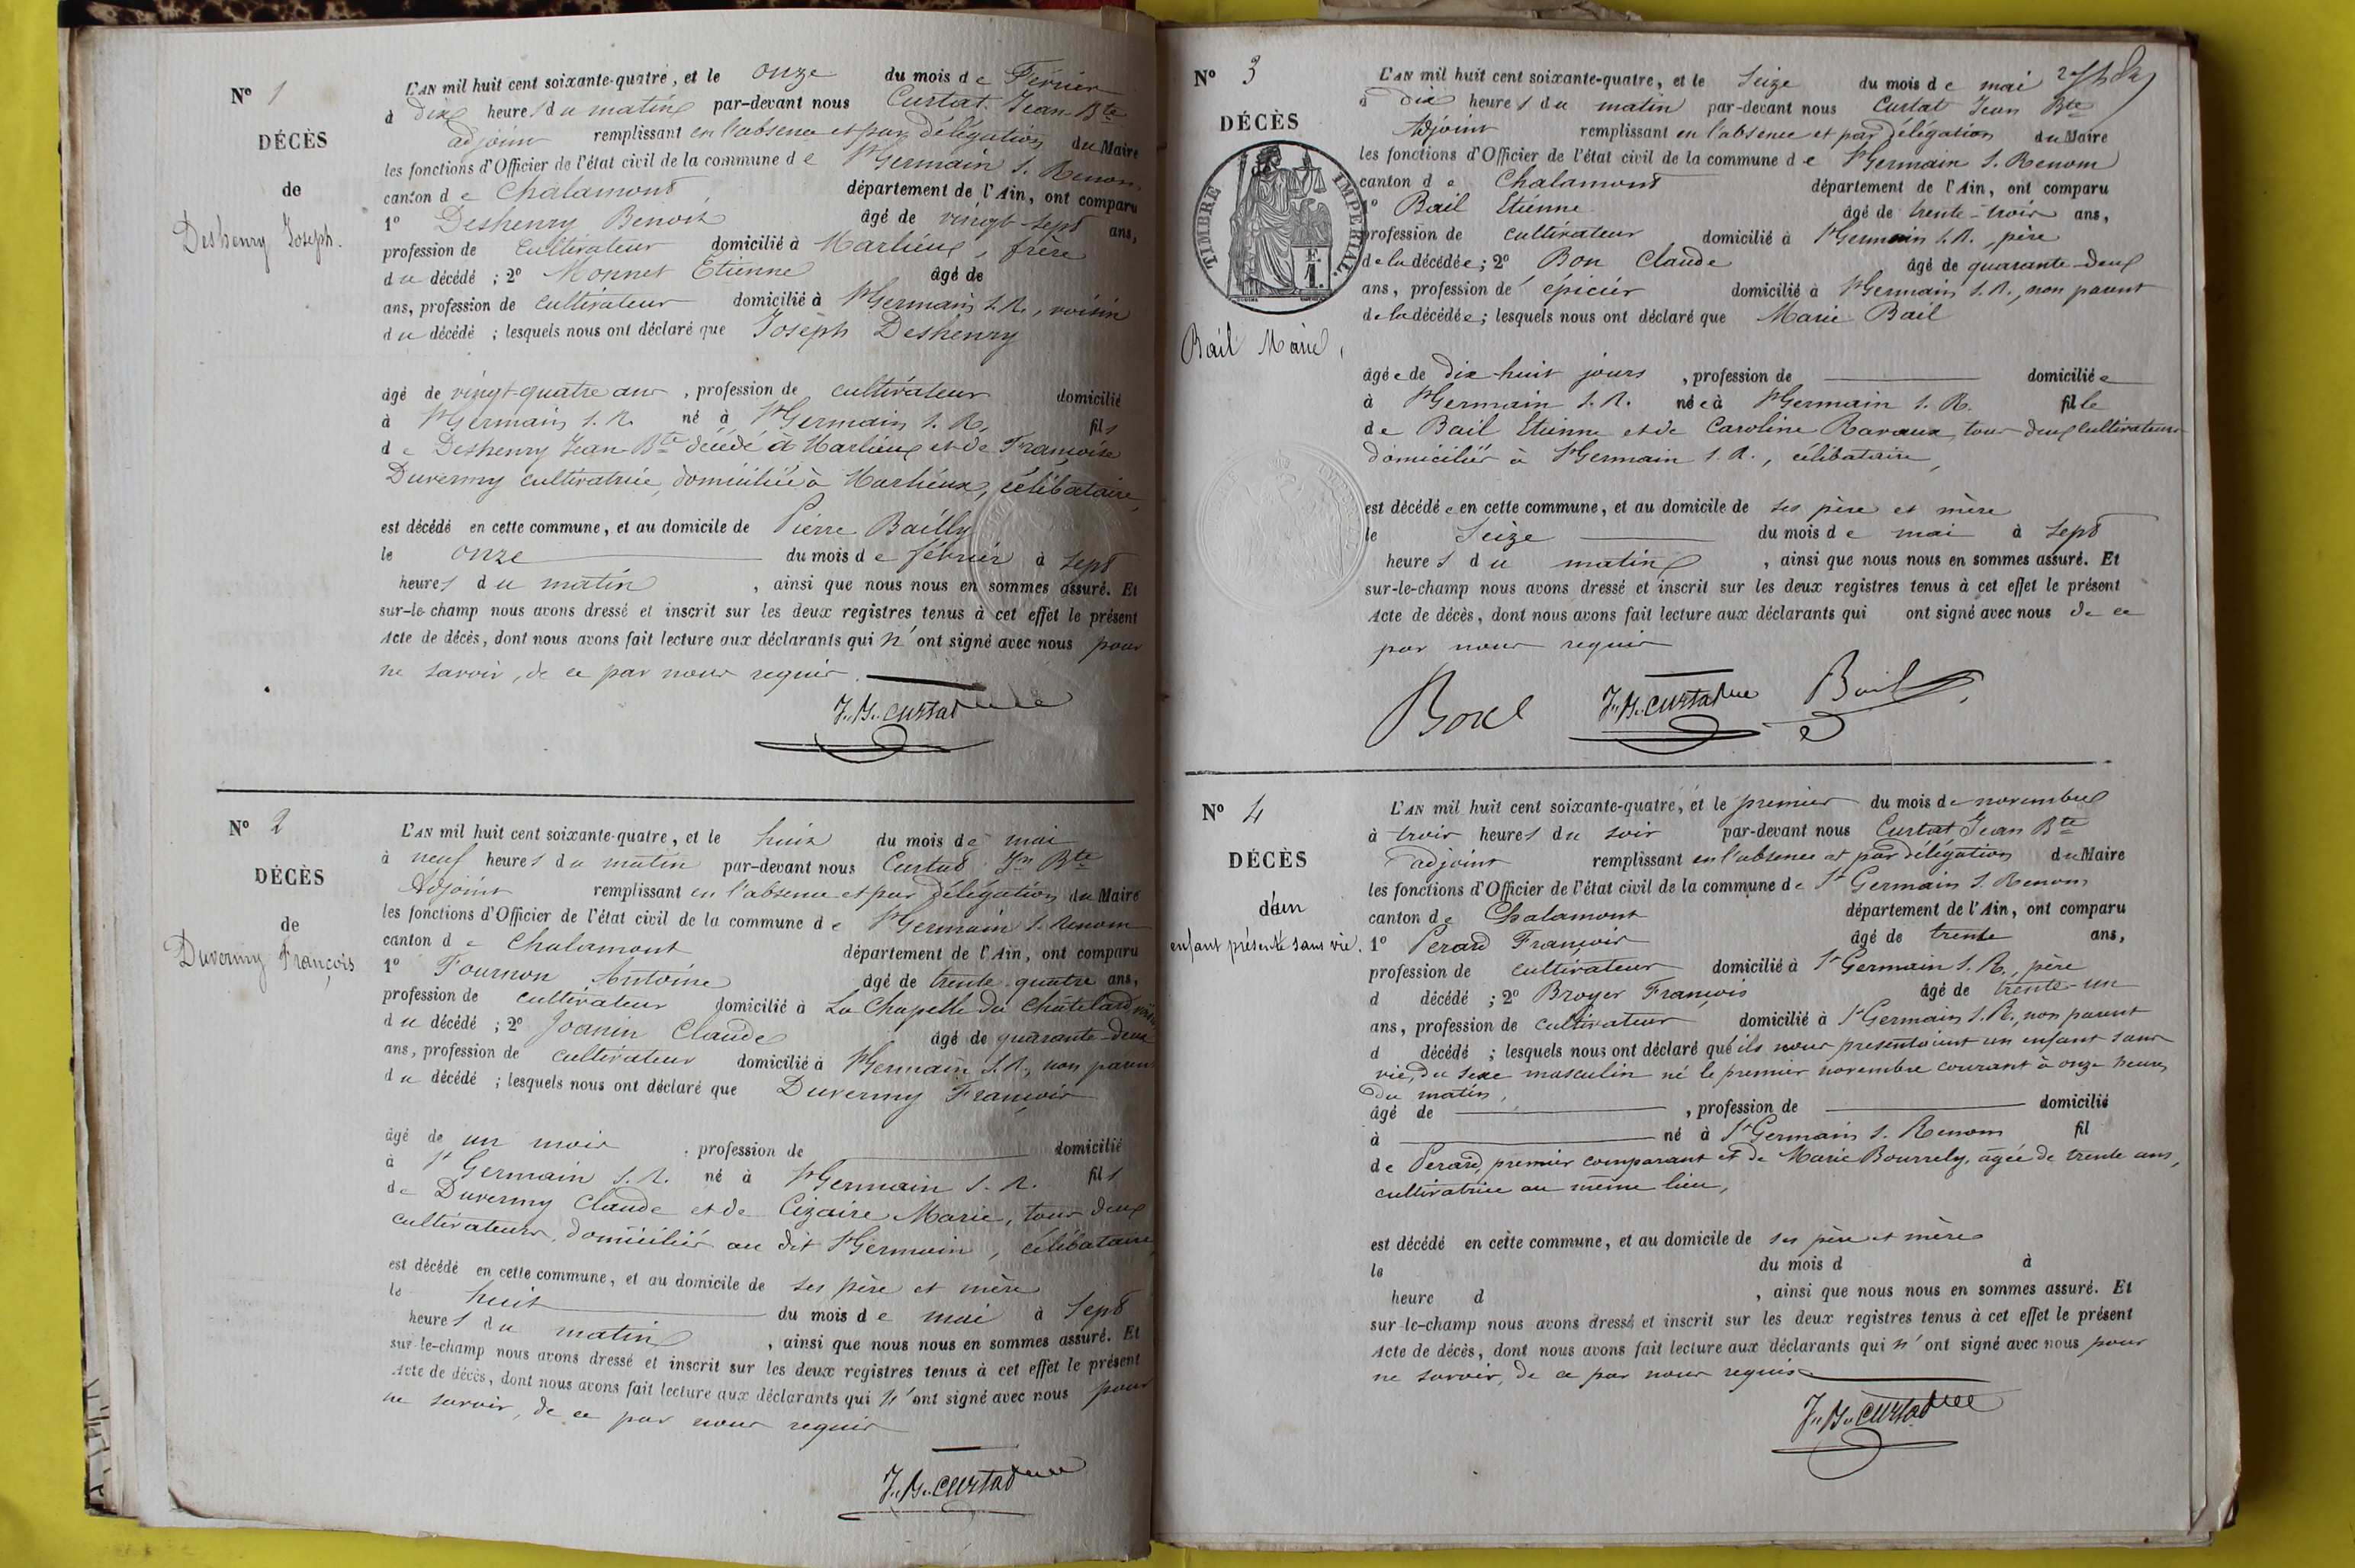 N° 1
DÉCÈS
de
Deshenry Joseph.
L'AN mil huit cent soixante-quatre, et le onze du mois de Février
à dix heures du matin par-devant nous Curtat Jean Bte
adjoint remplissant en l'absence et par délégation du Maire
les fonctions d'Officier de l'état civil de la commune de St Germain S. Renom,
canton de Chalamont département de l'Ain, ont comparu
1° Deshenry Benoit âgé de vingt-sept ans,
profession de cultivateur domicilié à Marlieux, frère
du décédé ; 2° Monnet Etienne âgé de
ans, profession de cultivateur domicilié à St Germain S. R., voisin
du décédé ; lesquels nous ont déclaré que Joseph Deshenry
âgé de vingt-quatre ans, profession de cultivateur domicilié
à St Germain S. R. né à St Germain S. R. fils
de Deshenry Jean Bte décédé à Marlieux et de Françoise
Duvermy cultivatrice, domiciliée à Marlieux, célibataire,
est décédé en cette commune, et au domicile de Pierre Bailly
le onze du mois de février à sept
heures du matin, ainsi que nous nous en sommes assuré. Et
sur-le-champ nous avons dressé et inscrit sur les deux registres tenus à cet effet le présent
Acte de décès, dont nous avons fait lecture aux déclarants qui n'ont signé avec nous pour
ne savoir, de ce par nous requis.
J. B. Curtat
N° 2
DÉCÈS
de
Duvermy François
L'AN mil huit cent soixante-quatre, et le huit du mois de mai
à neuf heures du matin par-devant nous Curtat Jn Bte
Adjoint remplissant en l'absence et par délégation du Maire
les fonctions d'Officier de l'état civil de la commune de St Germain S. Renom
canton de Chalamont département de l'Ain, ont comparu
1° Fournon Antoine âgé de trente quatre ans,
profession de cultivateur domicilié à La Chapelle du Châtelard
du décédé ; 2° Joanin Claude âgé de quarante-deux
ans, profession de cultivateur domicilié à St Germain S. R., non parent
du décédé ; lesquels nous ont déclaré que Duvermy François
âgé de un mois, profession de domicilié
à St Germain S. R. né à St Germain S. R. fils
de Duvermy Claude et de Cizaire Marie, tous deux
cultivateurs, domiciliés au dit St Germain, célibataire,
est décédé en cette commune, et au domicile de ses père et mère
le huit du mois de mai à sept
heures du matin, ainsi que nous nous en sommes assuré. Et
sur-le-champ nous avons dressé et inscrit sur les deux registres tenus à cet effet le présent
Acte de décès, dont nous avons fait lecture aux déclarants qui n'ont signé avec nous pour
ne savoir, de ce par nous requis
J. B. Curtat
N° 3
DÉCÈS
TIMBRE IMPÉRIAL.
F.
1.
Bail Marie,
L'AN mil huit cent soixante-quatre, et le seize du mois de mai
à dix heures du matin par-devant nous Curtat Jean Bte
Adjoint remplissant en l'absence et par délégation du Maire
les fonctions d'Officier de l'état civil de la commune de St Germain S. Renom
canton de Chalamont département de l'Ain, ont comparu
1° Bail Etienne âgé de trente-trois ans,
profession de cultivateur domicilié à St Germain S. R., père
de la décédée ; 2° Bon Claude âgé de quarante-deux
ans, profession de épicier domicilié à St Germain S. R., non parent
de la décédée ; lesquels nous ont déclaré que Marie Bail
âgée de dix huit jours, profession de domiciliée
à St Germain S. R. née à St Germain S. R. fille
de Bail Etienne et de Caroline Ravaux, tous deux cultivateurs
domiciliés à St Germain S. R., célibataire,
est décédée en cette commune, et au domicile de ses père et mère
le Seize du mois de mai à sept
heures du matin, ainsi que nous nous en sommes assuré. Et
sur-le-champ nous avons dressé et inscrit sur les deux registres tenus à cet effet le présent
Acte de décès, dont nous avons fait lecture aux déclarants qui ont signé avec nous de ce
par nous requis
J. B. Curtat Bail
N° 4
DÉCÈS
d'un
enfant présenté sans vie.
L'AN mil huit cent soixante-quatre, et le premier du mois de novembre
à trois heures du soir par-devant nous Curtat Jean Bte
adjoint remplissant en l'absence et par délégation du Maire
les fonctions d'Officier de l'état civil de la commune de St Germain S. Renom
canton de Chalamont département de l'Ain, ont comparu
1° Perard François âgé de trente ans,
profession de cultivateur domicilié à St Germain S. R., père
d décédé ; 2° Broyer François âgé de trente-un
ans, profession de cultivateur domicilié à St Germain S. R., non parent
d décédé ; lesquels nous ont déclaré qu'ils nous présentaient un enfant sans
vie, du sexe masculin né le premier novembre courant à onze heures
du matin,
âgé de , profession de domicilié
à né à St Germain S. Renom fil
de Perard, premier comparant et de Marie Bourrely, agée de trente ans,
cultivatrice au même lieu,
est décédé en cette commune, et au domicile de ses père et mère
le du mois d à
heure d , ainsi que nous nous en sommes assuré. Et
sur-le-champ nous avons dressé et inscrit sur les deux registres tenus à cet effet le présent
Acte de décès, dont nous avons fait lecture aux déclarants qui n'ont signé avec nous pour
ne savoir, de ce par nous requis
J. B. Curtat